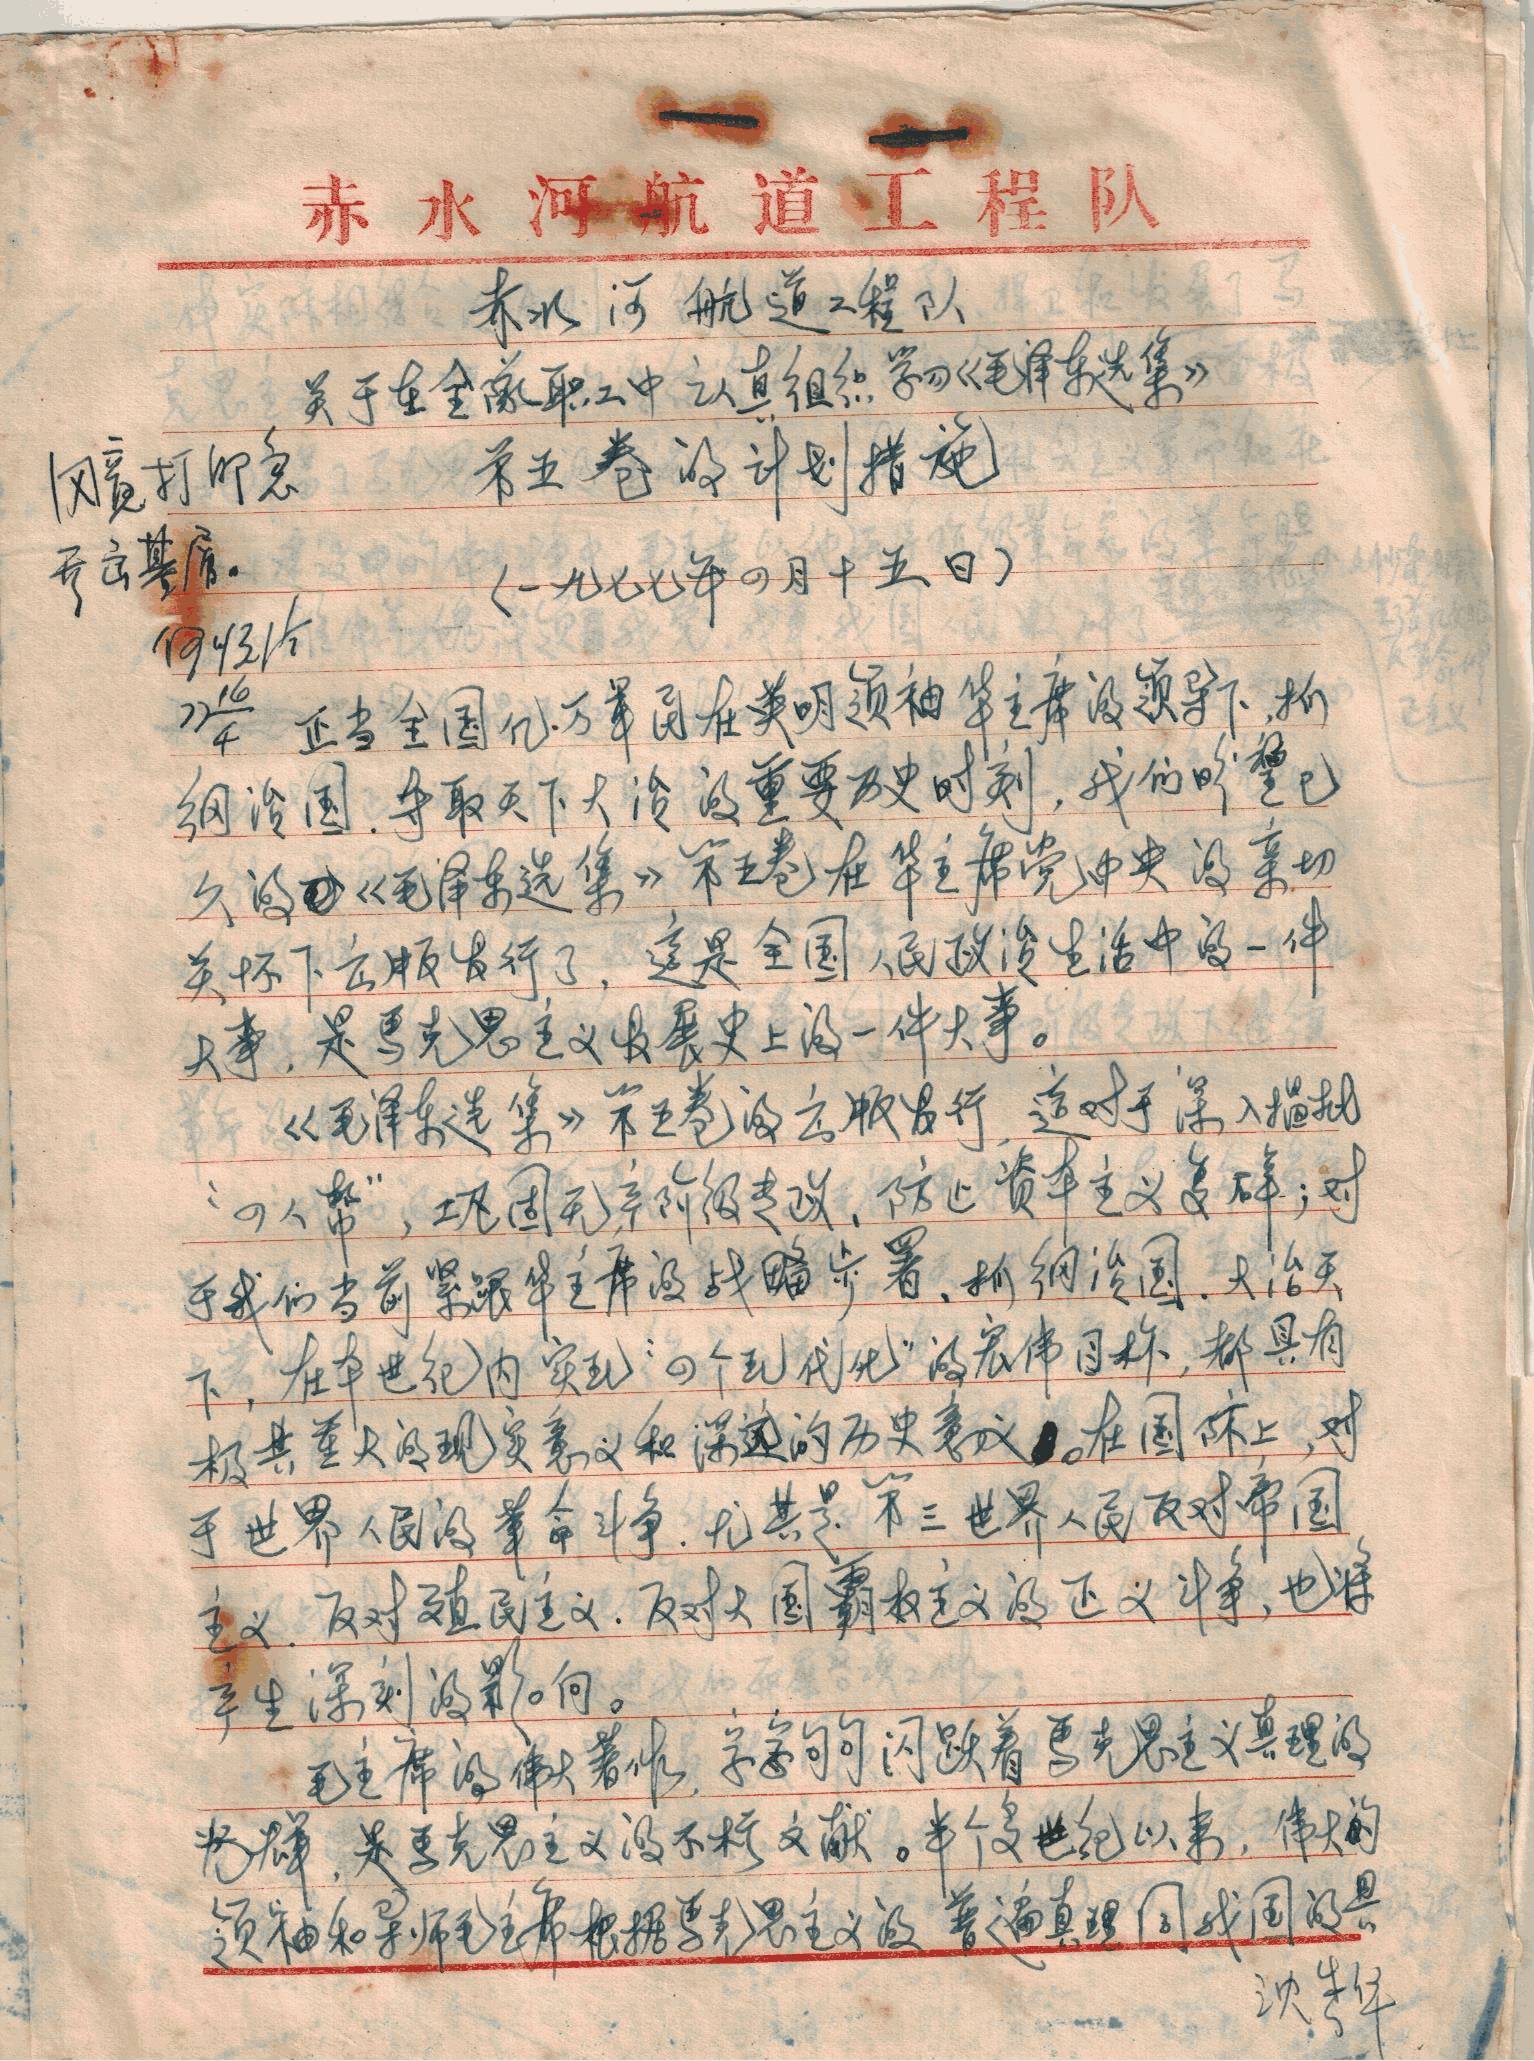 赤水河航道工程队
赤水河航道工程队
关于在全队职工中认真组织学习《毛泽东选集》
第五卷的计划措施
同意打印急
发基层。
(一九七七年四月十五日)
16/4
正当全国亿万军民在英明领袖华主席的领导下,抓
纲治国、夺取天下大治的重要历史时刻,我们盼望已
久的《毛泽东选集》第五卷在华主席党中央的亲切
关怀下出版发行了,这是全国人民政治生活中的一件
大事,是马克思主义发展史上的一件大事。
《毛泽东选集》第五卷的出版发行,这对于深入揭批
“四人帮”,巩固无产阶级专政、防止资本主义复辟;对
于我们当前紧跟华主席的战略步署、抓纲治国、大治天
下,在本世纪内实现“四个现代化”的宏伟目标,都具有
极其重大的现实意义和深远的历史意义。在国际上,对
于世界人民的革命斗争、尤其是第三世界人民反对帝国
主义、反对殖民主义、反对大国霸权主义的正义斗争,也将
产生深刻的影向。
毛主席的伟大著作,字字句句闪跃着马克思主义真理的
光辉,是马克思主义的不朽文献。半个多世纪以来,伟大的
领袖和导师毛主席根据马克思主义的普遍真理同我国的具